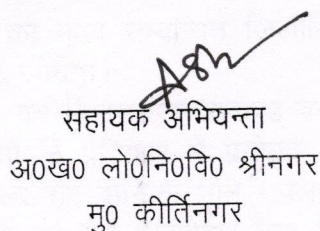 सहायक अभियन्ता
अ0ख0 लो0नि0वि0 श्रीनगर
मु0 कीर्तिनगर